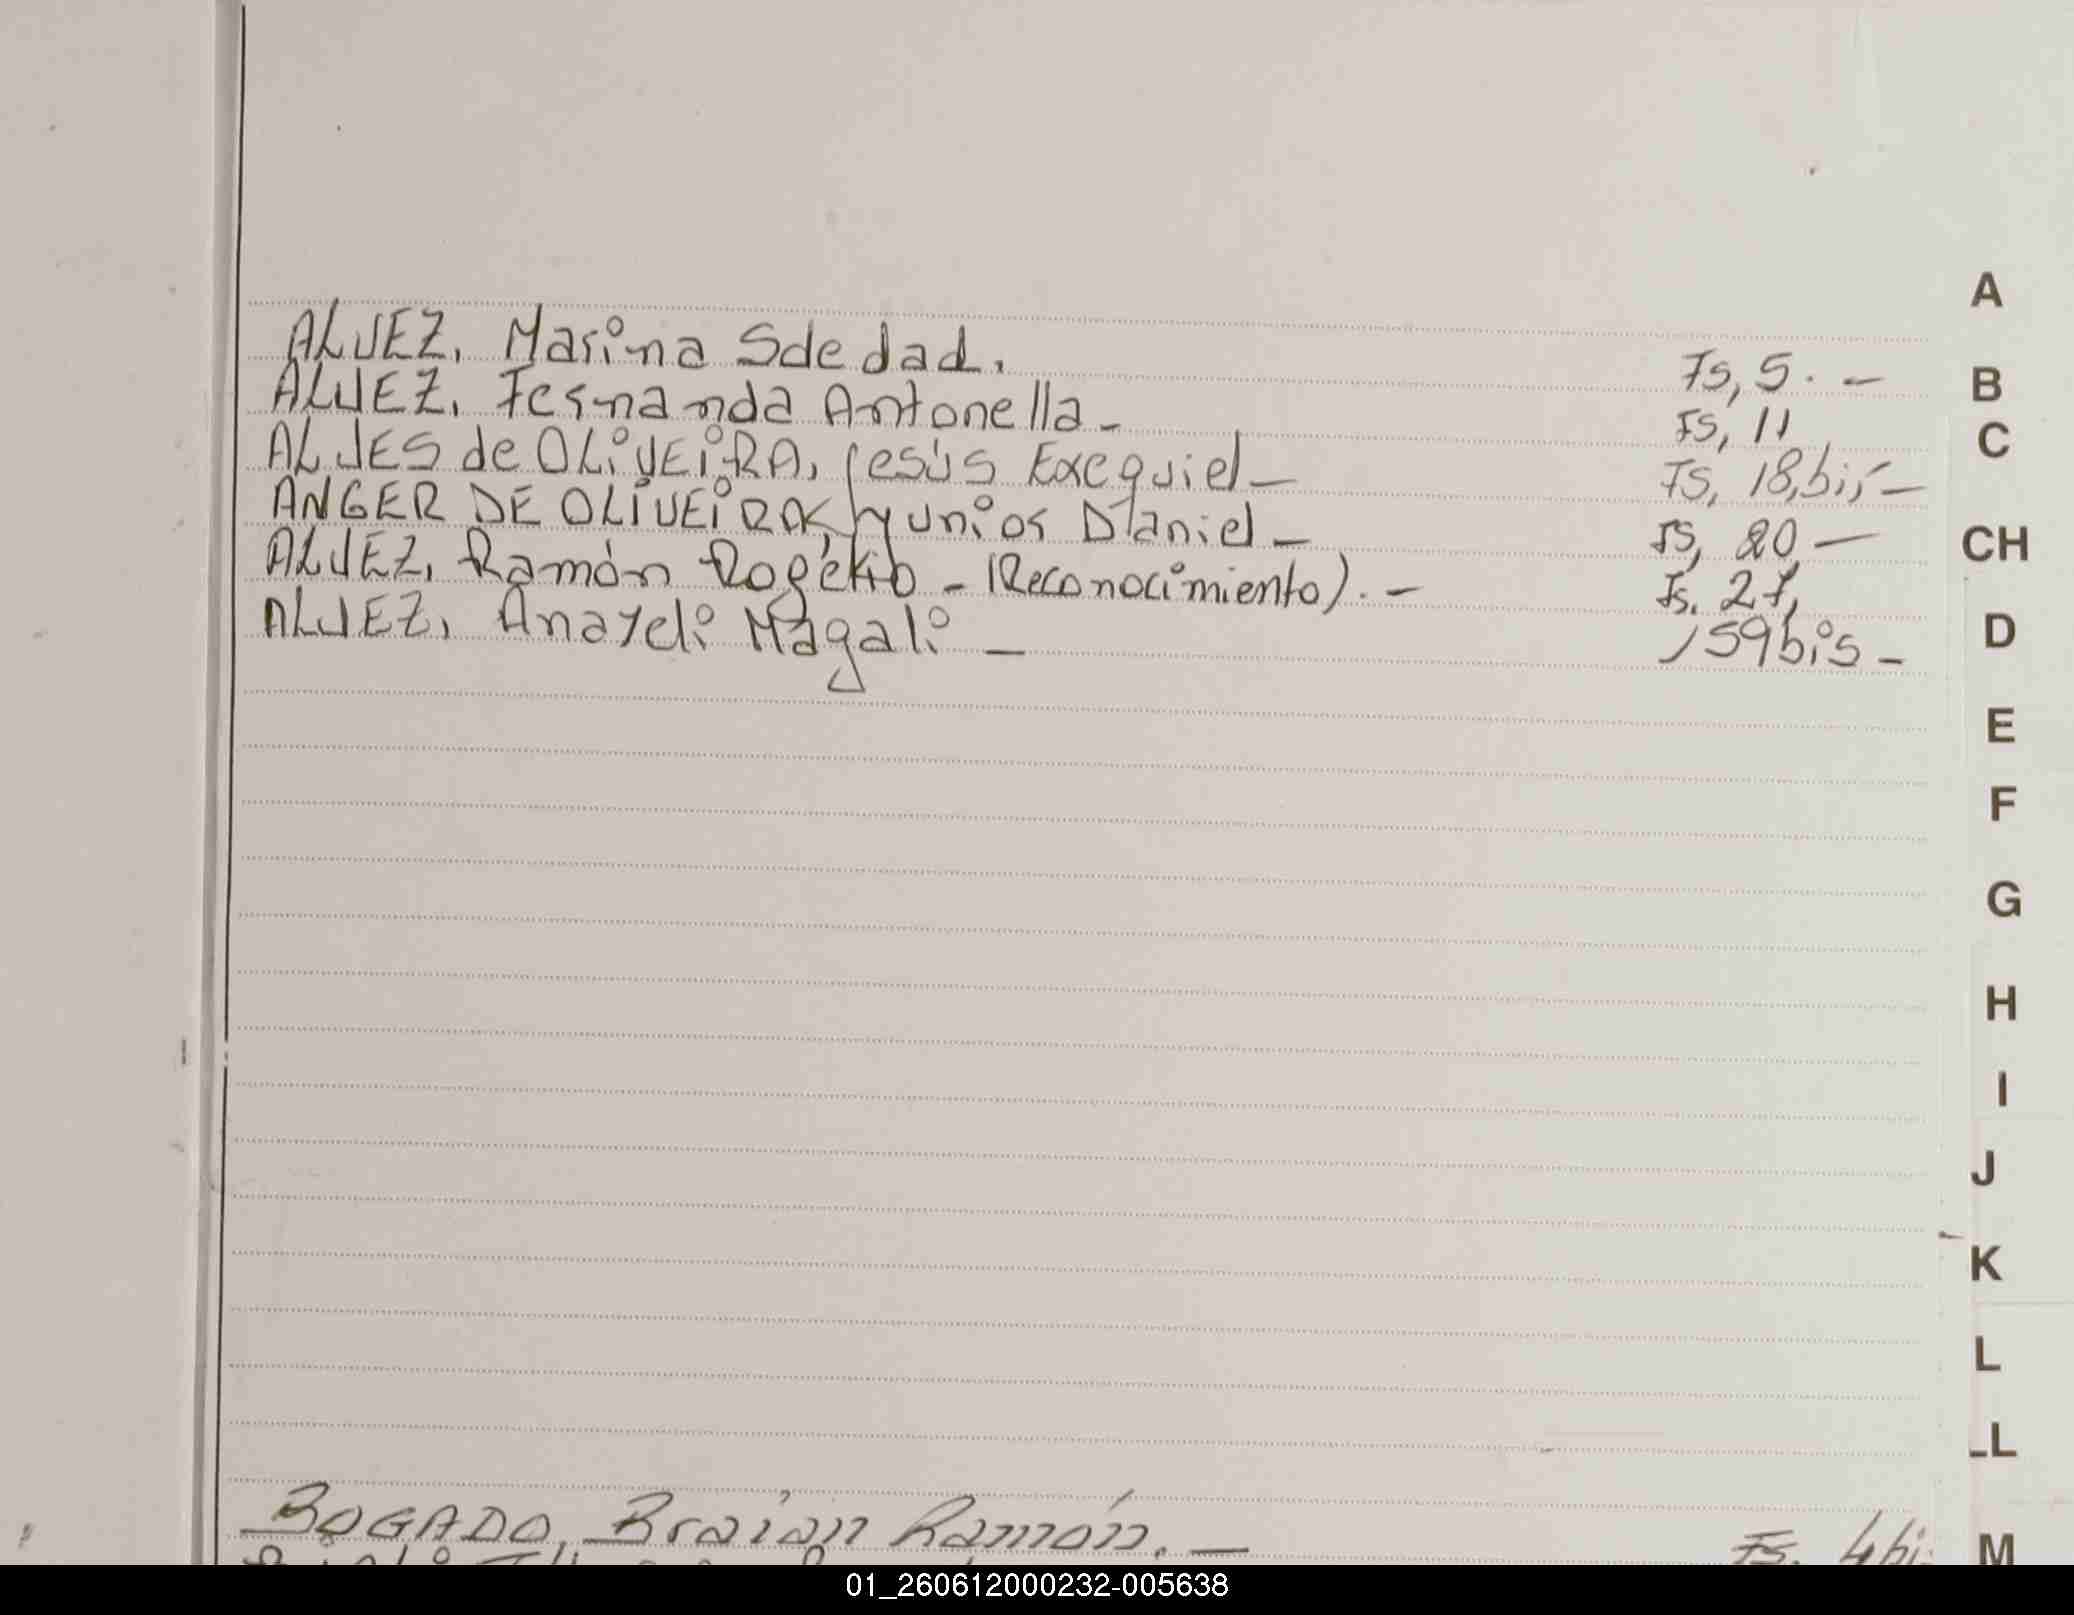 ALVEZ, Marina Soledad. Fs, 5. –
ALVEZ, Fernanda Antonella – Fs, 11
ALVES de OLIVEIRA, Jesús Exequiel – Fs, 18, bis –
ANGER DE OLIVEIRA, Yunior Daniel – Fs, 20, –
ALVEZ, Ramón Rogelio – (Reconocimiento). – Fs. 27,
ALVEZ, Anayeli Magali – 159 bis –
BOGADO, Braian Ramón. – Fs. 4 bi
A
B
C
CH
D
E
F
G
H
I
J
K
L
LL
M
01_260612000232-005638